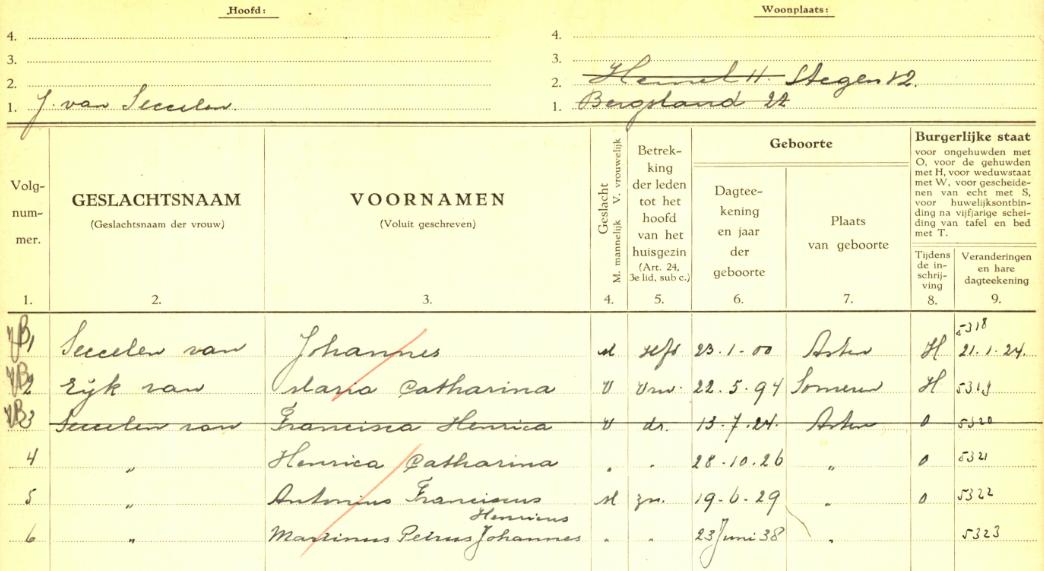 Hoofd: Woonplaats:
4. 4.
3. 3.
2. 2. Hemel H. Stegen 82.
1. J. van Seccelen. 1. Bergsland 22
Volg-
num-
mer.
1.
GESLACHTSNAAM
(Geslachtsnaam der vrouw)
2.
VOORNAMEN
(Voluit geschreven)
3.
Geslacht
M. mannelijk V. vrouwelijk
4.
Betrek-
king
der leden
tot het
hoofd
van het
huisgezin
(Art. 24,
3e lid, sub c.)
5.
Geboorte
Dagtee-
kening
en jaar
der
geboorte
6.
Plaats
van geboorte
7.
Burgerlijke staat
voor ongehuwden met
O, voor de gehuwden
met H, voor weduwstaat
met W, voor gescheide-
nen van echt met S,
voor huwelijksontbin-
ding na vijfjarige schei-
ding van tafel en bed
met T.
Tijdens
de in-
schrij-
ving
8.
Veranderingen
en hare
dagteekening
9.
5318
1 Seccelen van Johannes M Hfd 23.1.00 Asten H 21.1.24.
2 Eijk van Maria Catharina V Vrw. 22.5.94 Someren H 5319
3 Seccelen van Francisca Henrica V dr. 13.7.24. Asten O 5320
4 „ Henrica Catharina „ „ 28.10.26 „ O 5321
5 „ Antonius Franciscus M zn. 19.6.29 „ O 5322
Henricus
6 „ Martinus Petrus Johannes „ „ 23 Juni 38 „ 5323